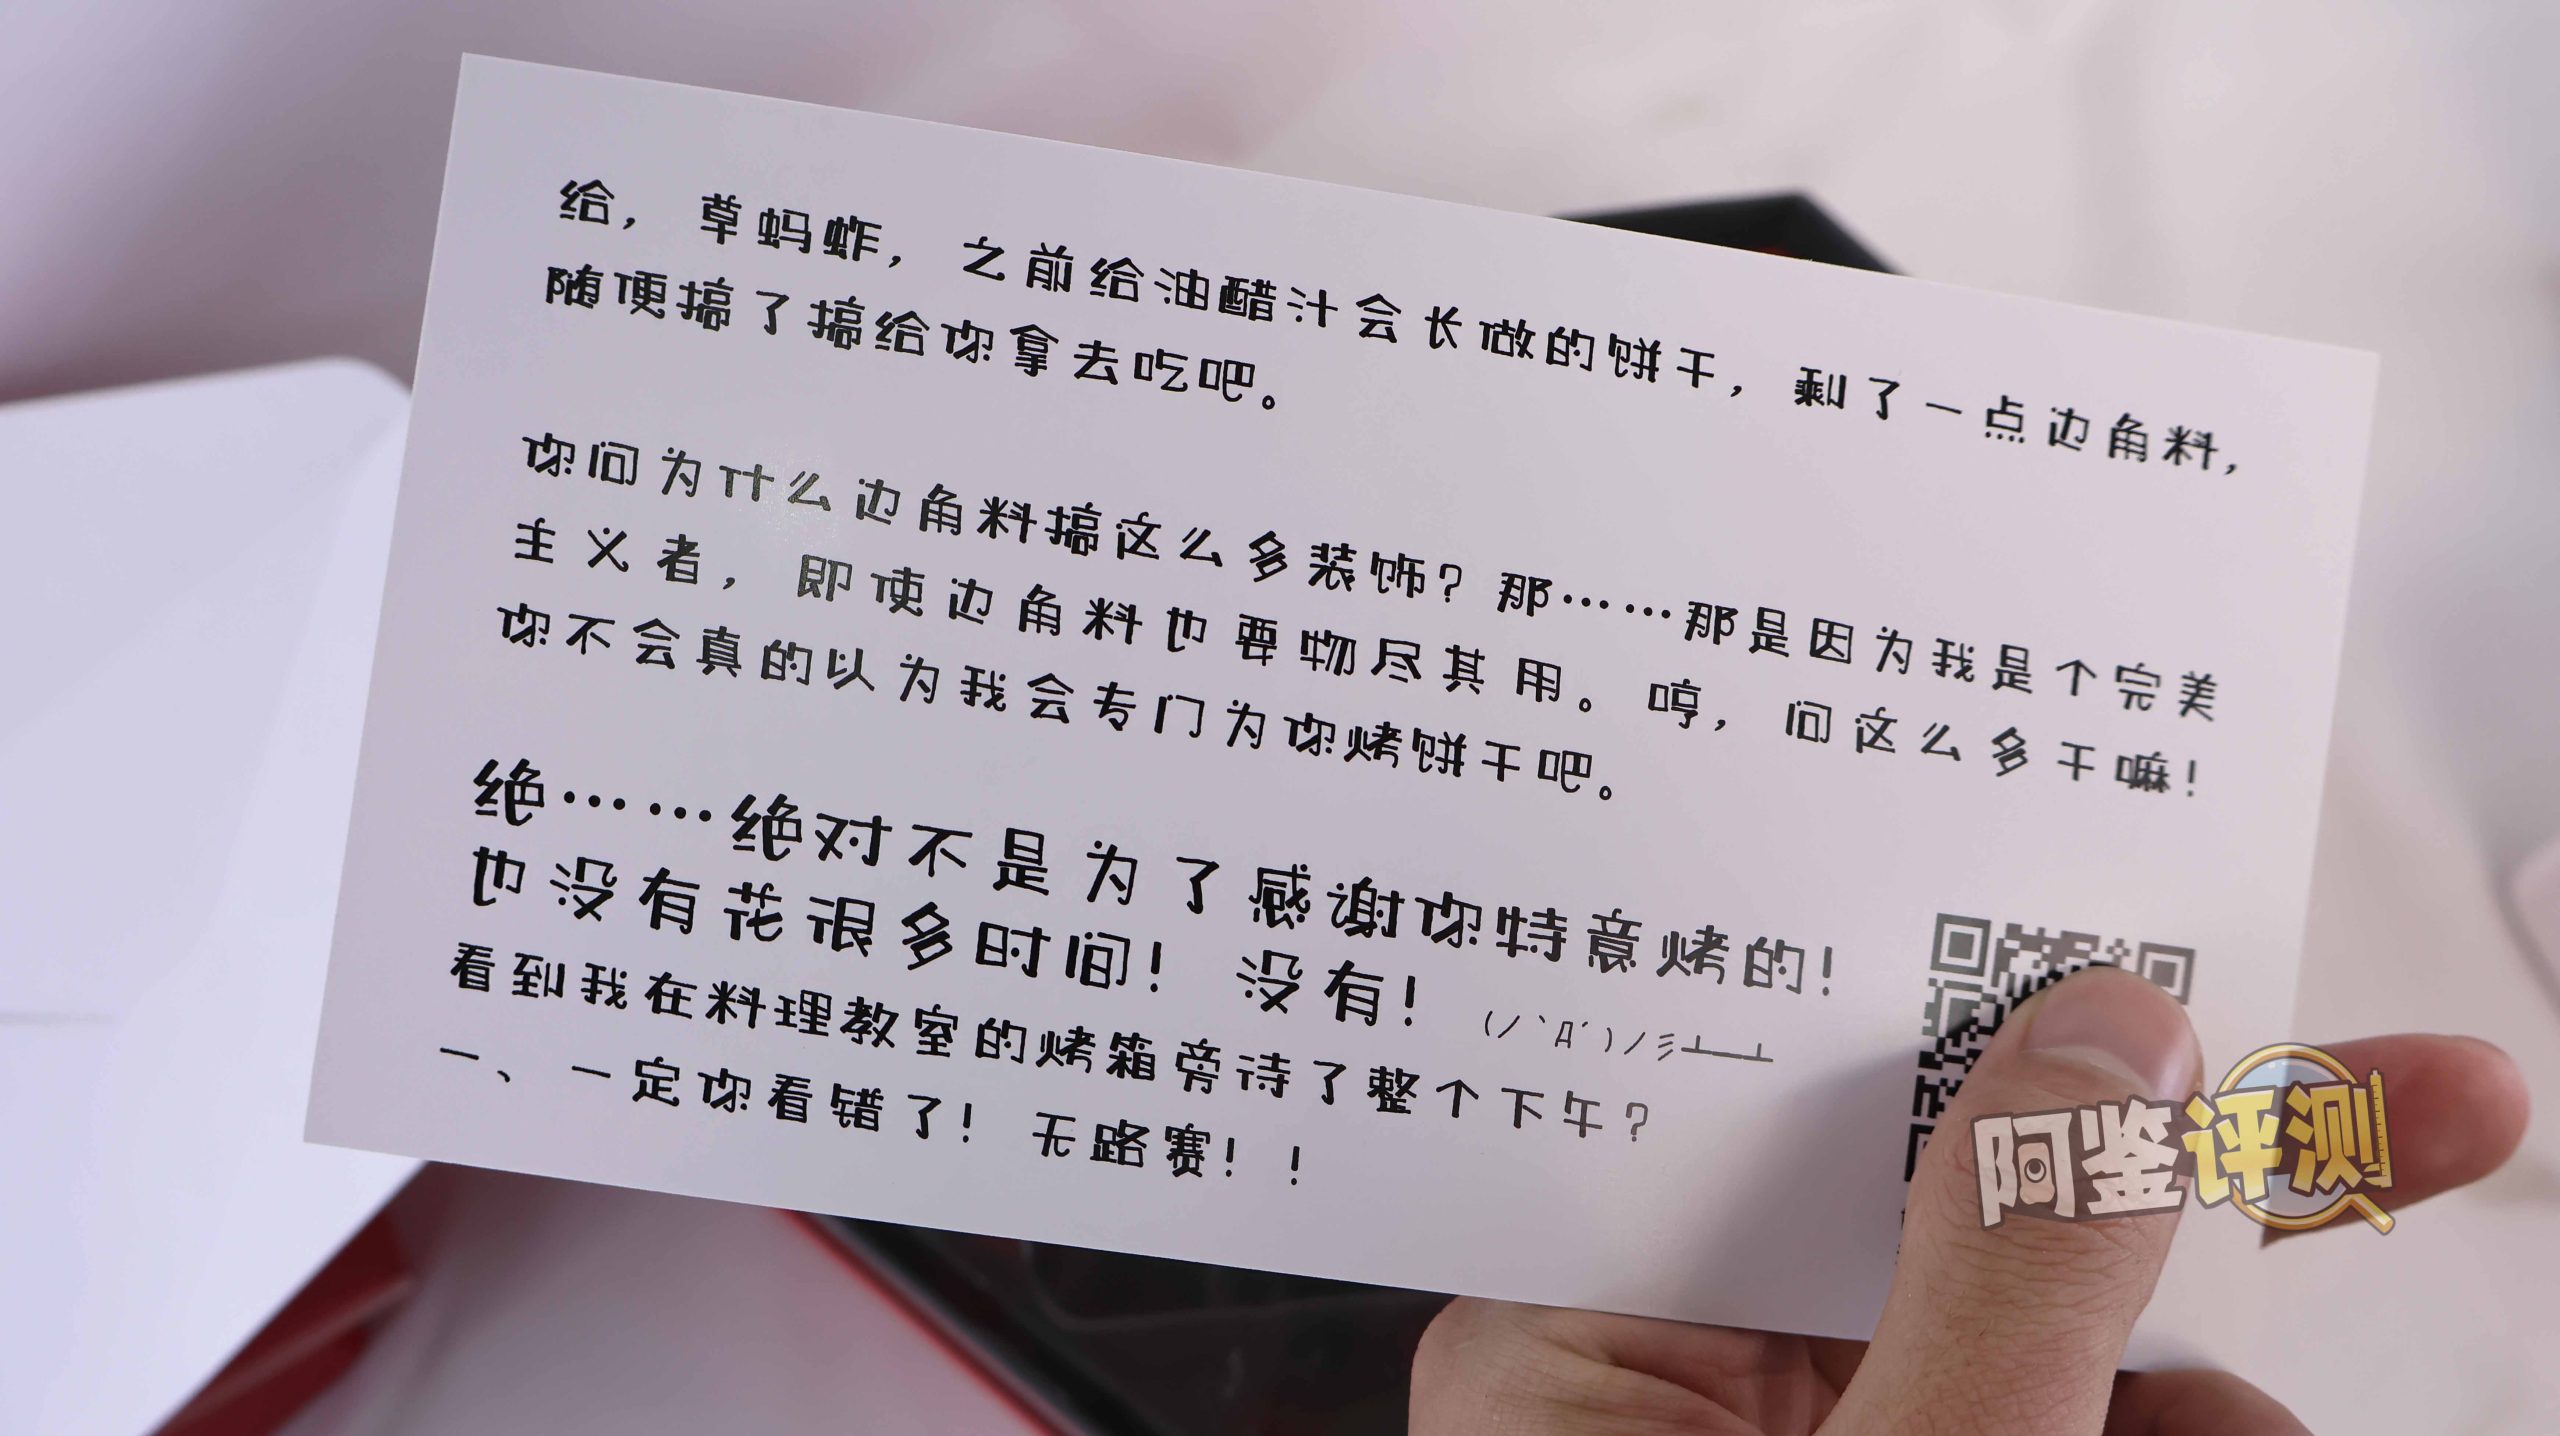 给，草蚂蚱，之前给油醋汁会长做的饼干，剩了一点边角料，
随便搞了搞给你拿去吃吧。
你问为什么边角料搞这么多装饰？那……那是因为我是个完美
主义者，即使边角料也要物尽其用。哼，问这么多干嘛！
你不会真的以为我会专门为你烤饼干吧。
绝……绝对不是为了感谢你特意烤的！
也没有花很多时间！没有！(ノ`Д´)ノ彡┻━┻
看到我在料理教室的烤箱旁待了整个下午？
一、一定你看错了！无路赛！！
阿鉴评测